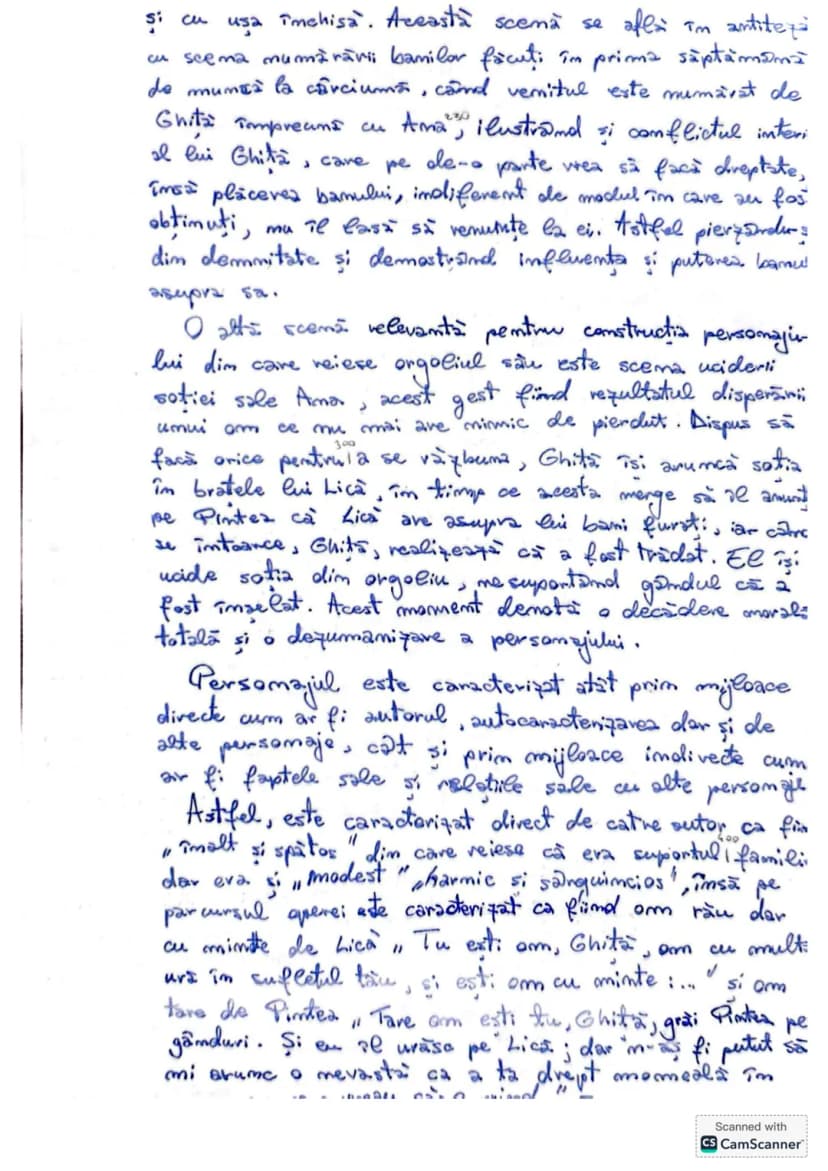 și cu ușa închisă. Această scenă se află în antiteză
cu scena numărării banilor făcuți în prima săptămână
de muncă la cârciumă, când venitul este numărat de
Ghiță împreună cu Ana, ilustrând și conflictul interi
al lui Ghiță, care pe de-o parte vrea să facă dreptate,
însă plăcerea banului, indiferent de modul în care au fos
obținuți, nu îl lasă să renunțe la ei. Astfel pierzându-ș
din demnitate și demostrând influența și puterea banul
asupra sa.
O altă scenă relevantă pentru construcția personaju-
lui din care reiese orgoliul său este scena uciderii
soției sale Ana, acest gest fiind rezultatul disperării
unui om ce nu mai are nimic de pierdut. Dispus să
300
facă orice pentru a se răzbuna, Ghiță își aruncă soția
în brațele lui Lică, în timp ce acesta merge să îl anunț
pe Pintea că Lică are asupra lui bani furați, iar când
se întoarce, Ghiță, realizează că a fost trădat. El își
ucide soția din orgoliu, nesuportând gândul că a
fost înșelat. Acest moment denotă o decădere morală
totală și o dezumanizare a personajului.
Personajul este caracterizat atât prin mijloace
directe cum ar fi autorul, autocaracterizarea dar și de
alte personaje, cât și prin mijloace indirecte cum
ar fi faptele sale și relațiile sale cu alte personaje
Astfel, este caracterizat direct de catre autor ca fiin
400
„înalt și spătos" din care reiese că era suportul familiei
dar era și „modest" „harnic si sânguincios", însă pe
parcursul operei este caracterizat ca fiind om rău dar
cu minte de Lică „Tu ești om, Ghiță, om cu multă
ură în sufletul tău, și ești om cu minte:..." si om
tare de Pintea „Tare om ești tu, Ghiță, grăi Pintea pe
gânduri. Și eu îl urăsc pe Lică; dar n-aș fi putut să
mi arunc o nevastă ca a ta drept momeală în
Scanned with
CS CamScanner